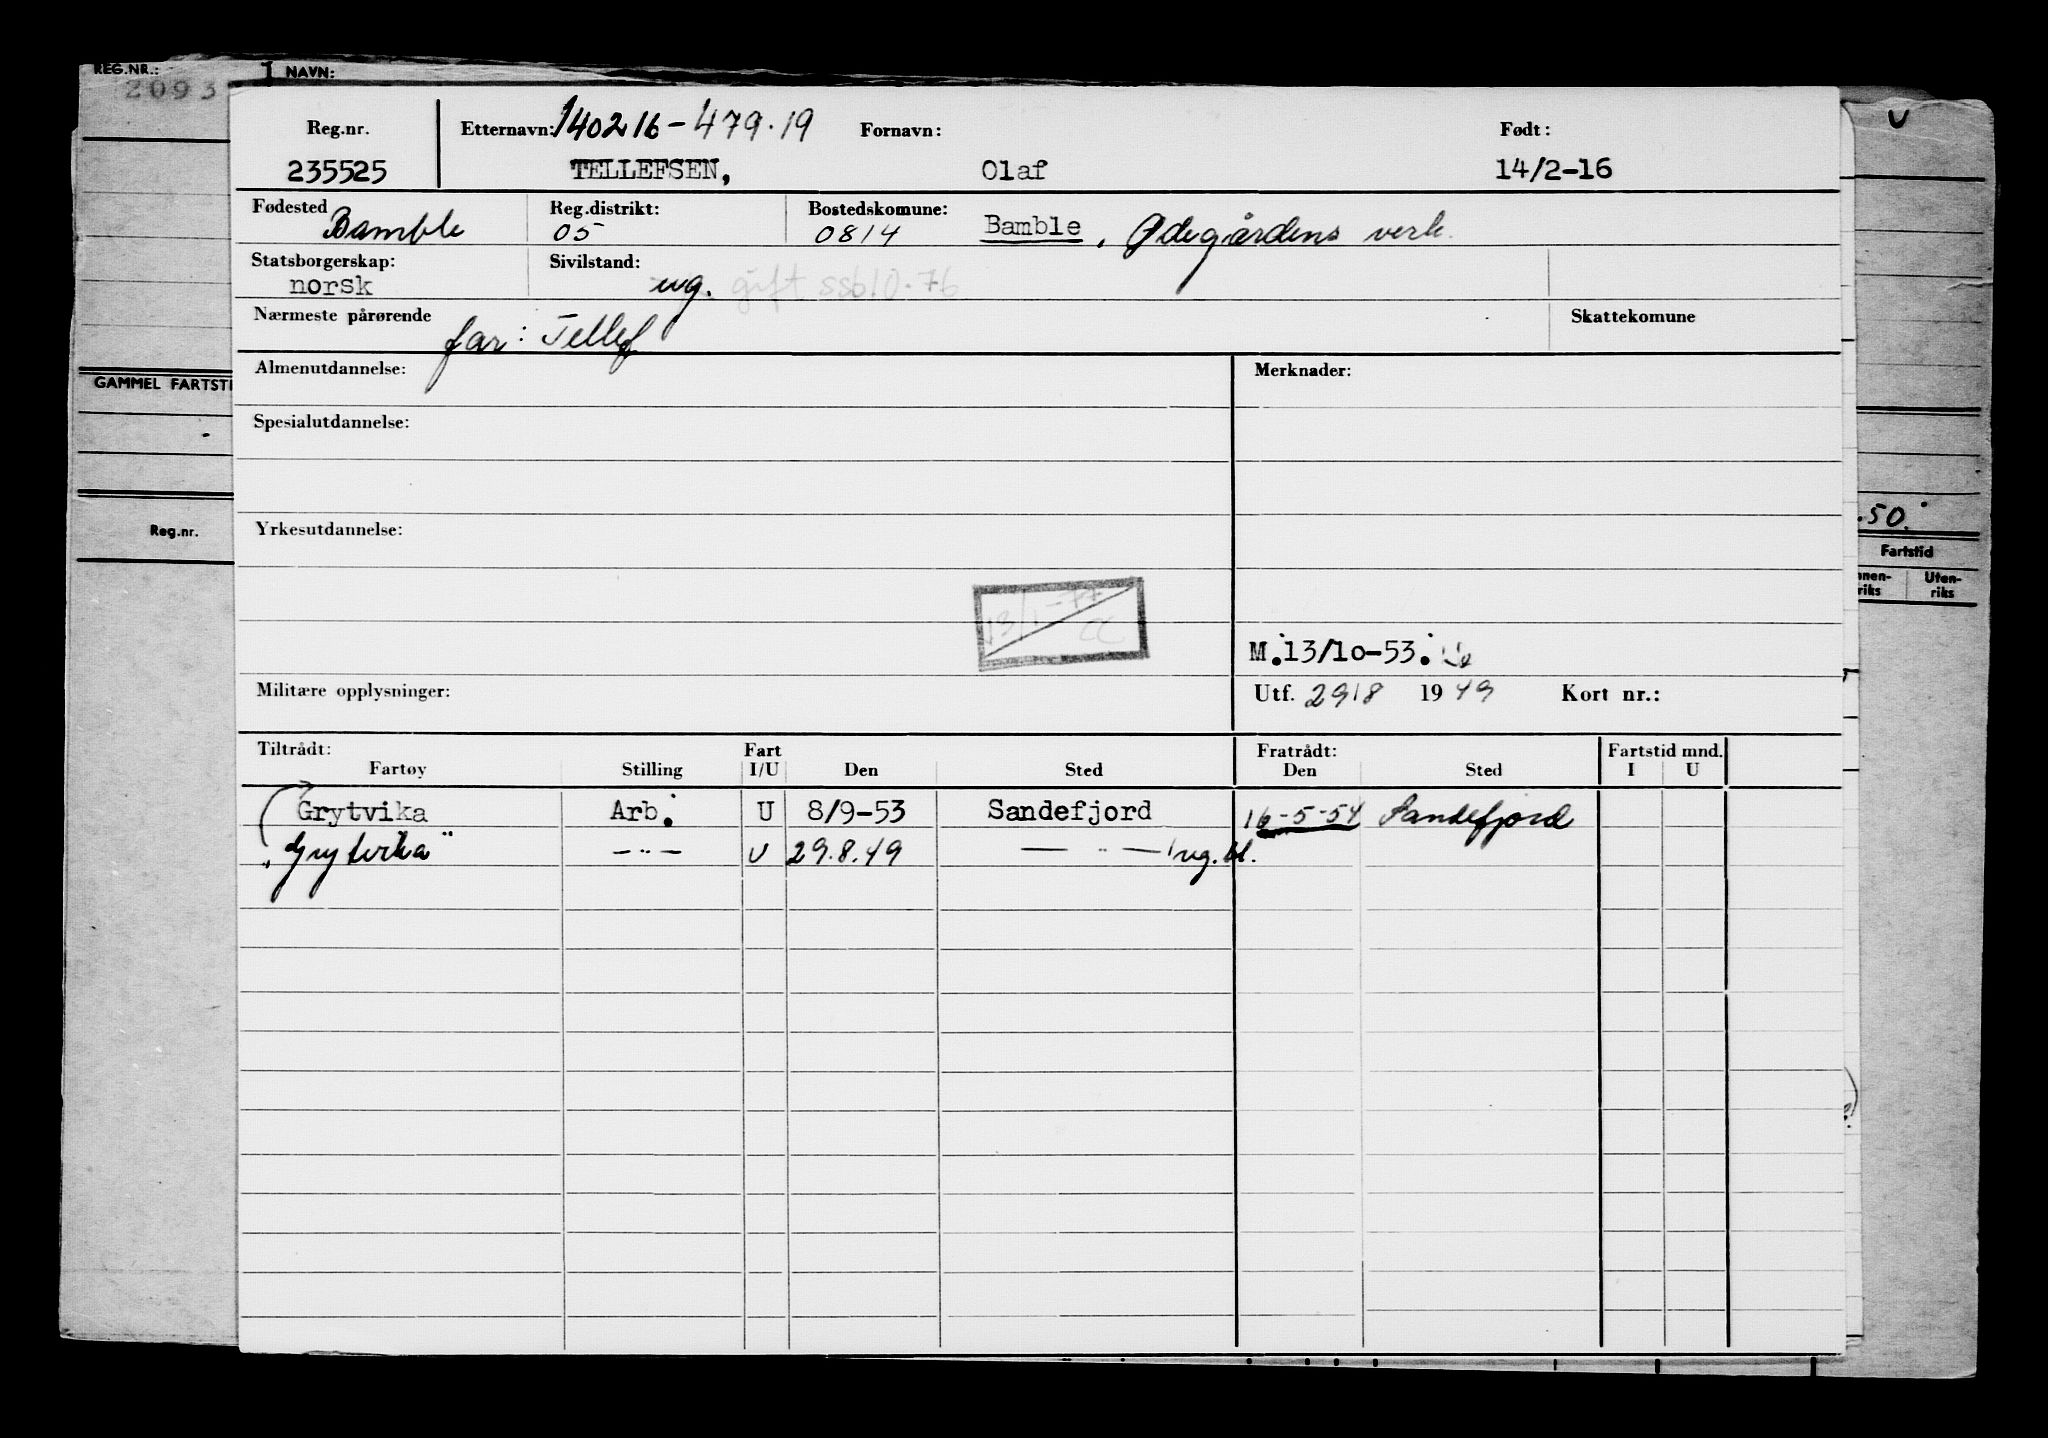 REG.NR.: NAVN:
2093
Reg.nr. Etternavn: 140216-479.19 Fornavn: Født:
235525 TELLEFSEN, Olaf 14/2-16
Fødested Reg.distrikt: Bostedskomune:
Bamble 05 0814 Bamble, Ødegårdens verk.
Statsborgerskap: Sivilstand:
norsk ug. gift ssb10.76
Nærmeste pårørende Skattekomune
far: Tellef
GAMMEL FARTSTI
Almenutdannelse: Merknader:
Spesialutdannelse:
Reg.nr. Yrkesutdannelse:
50.
Fartstid
nnen-riks Uten-riks
13/1-77
CC
M.13/10-53.
Militære opplysninger: Utf. 29/8 1949 Kort nr.:
Tiltrådt: Fart Fratrådt: Fartstid mnd.
Fartøy Stilling I/U Den Sted Den Sted I U
Grytvika Arb. U 8/9-53 Sandefjord 16-5-54 Sandefjord
"Grytvika" —"— U 29.8.49 —"— ug. bl.